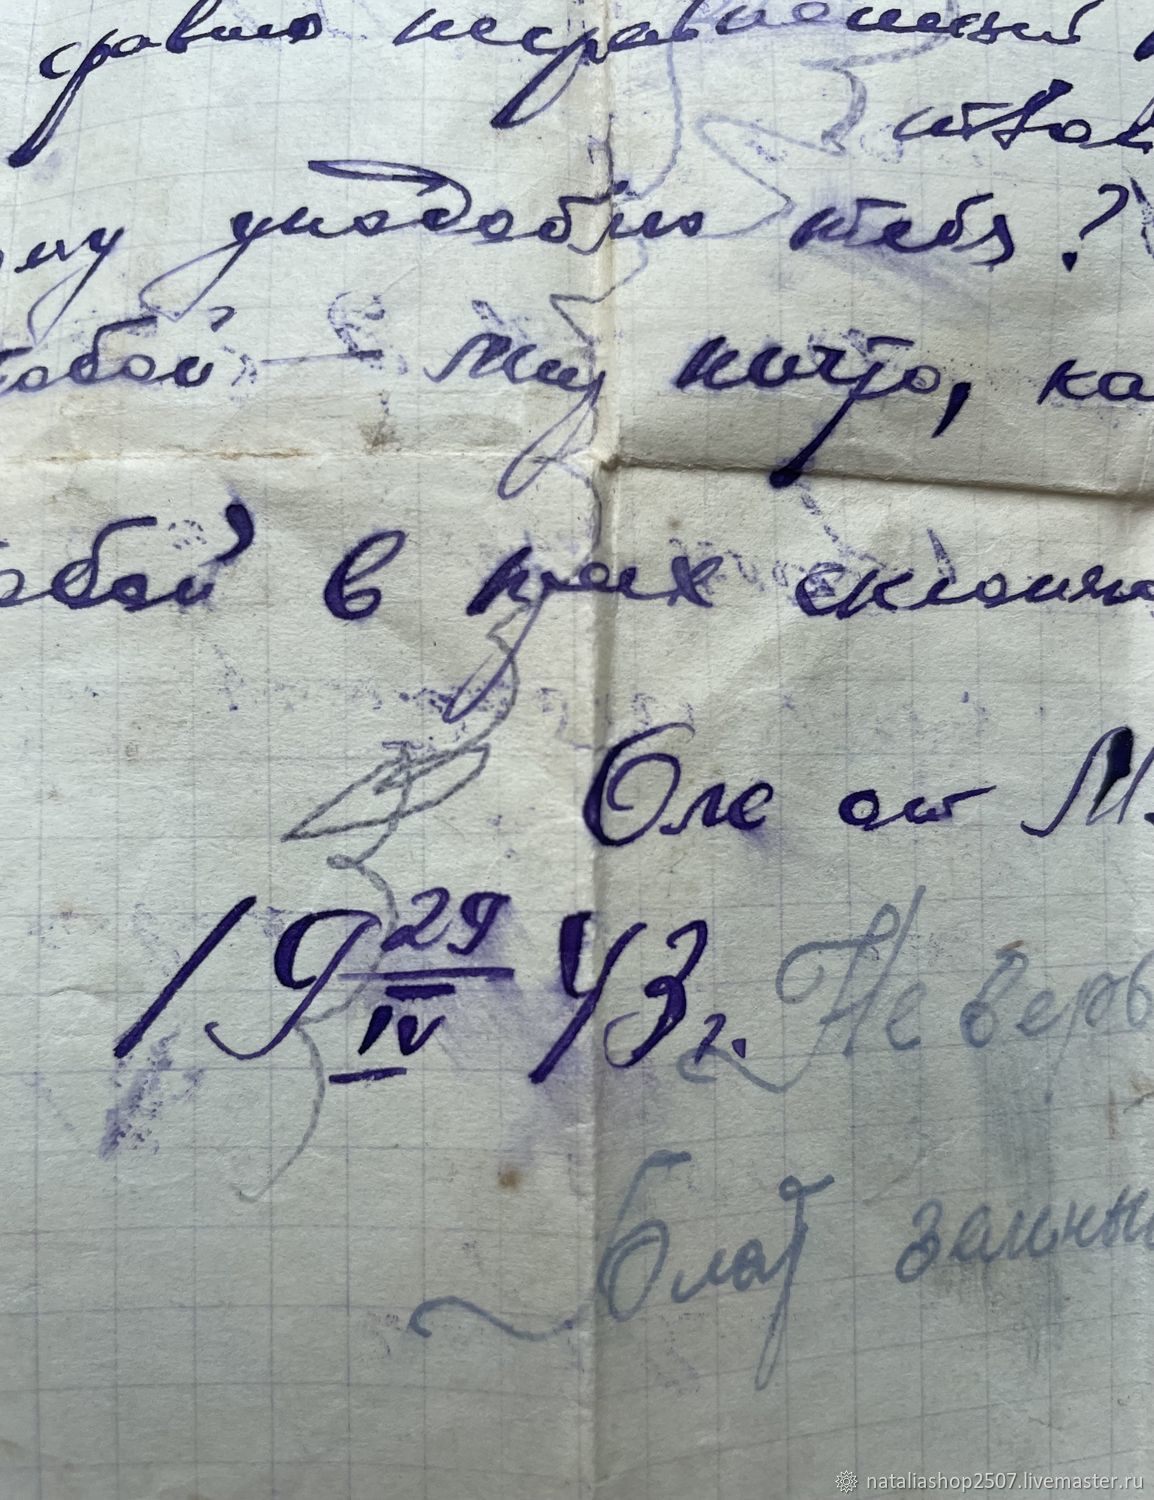 сравню несравненный
твой
му уподоблю тебя?
тобой — мир ничто,
тобой в прах склоня
Оле от М.
19 29/IV 43 г.
Не верь
благ земны
nataliashop2507.livemaster.ru